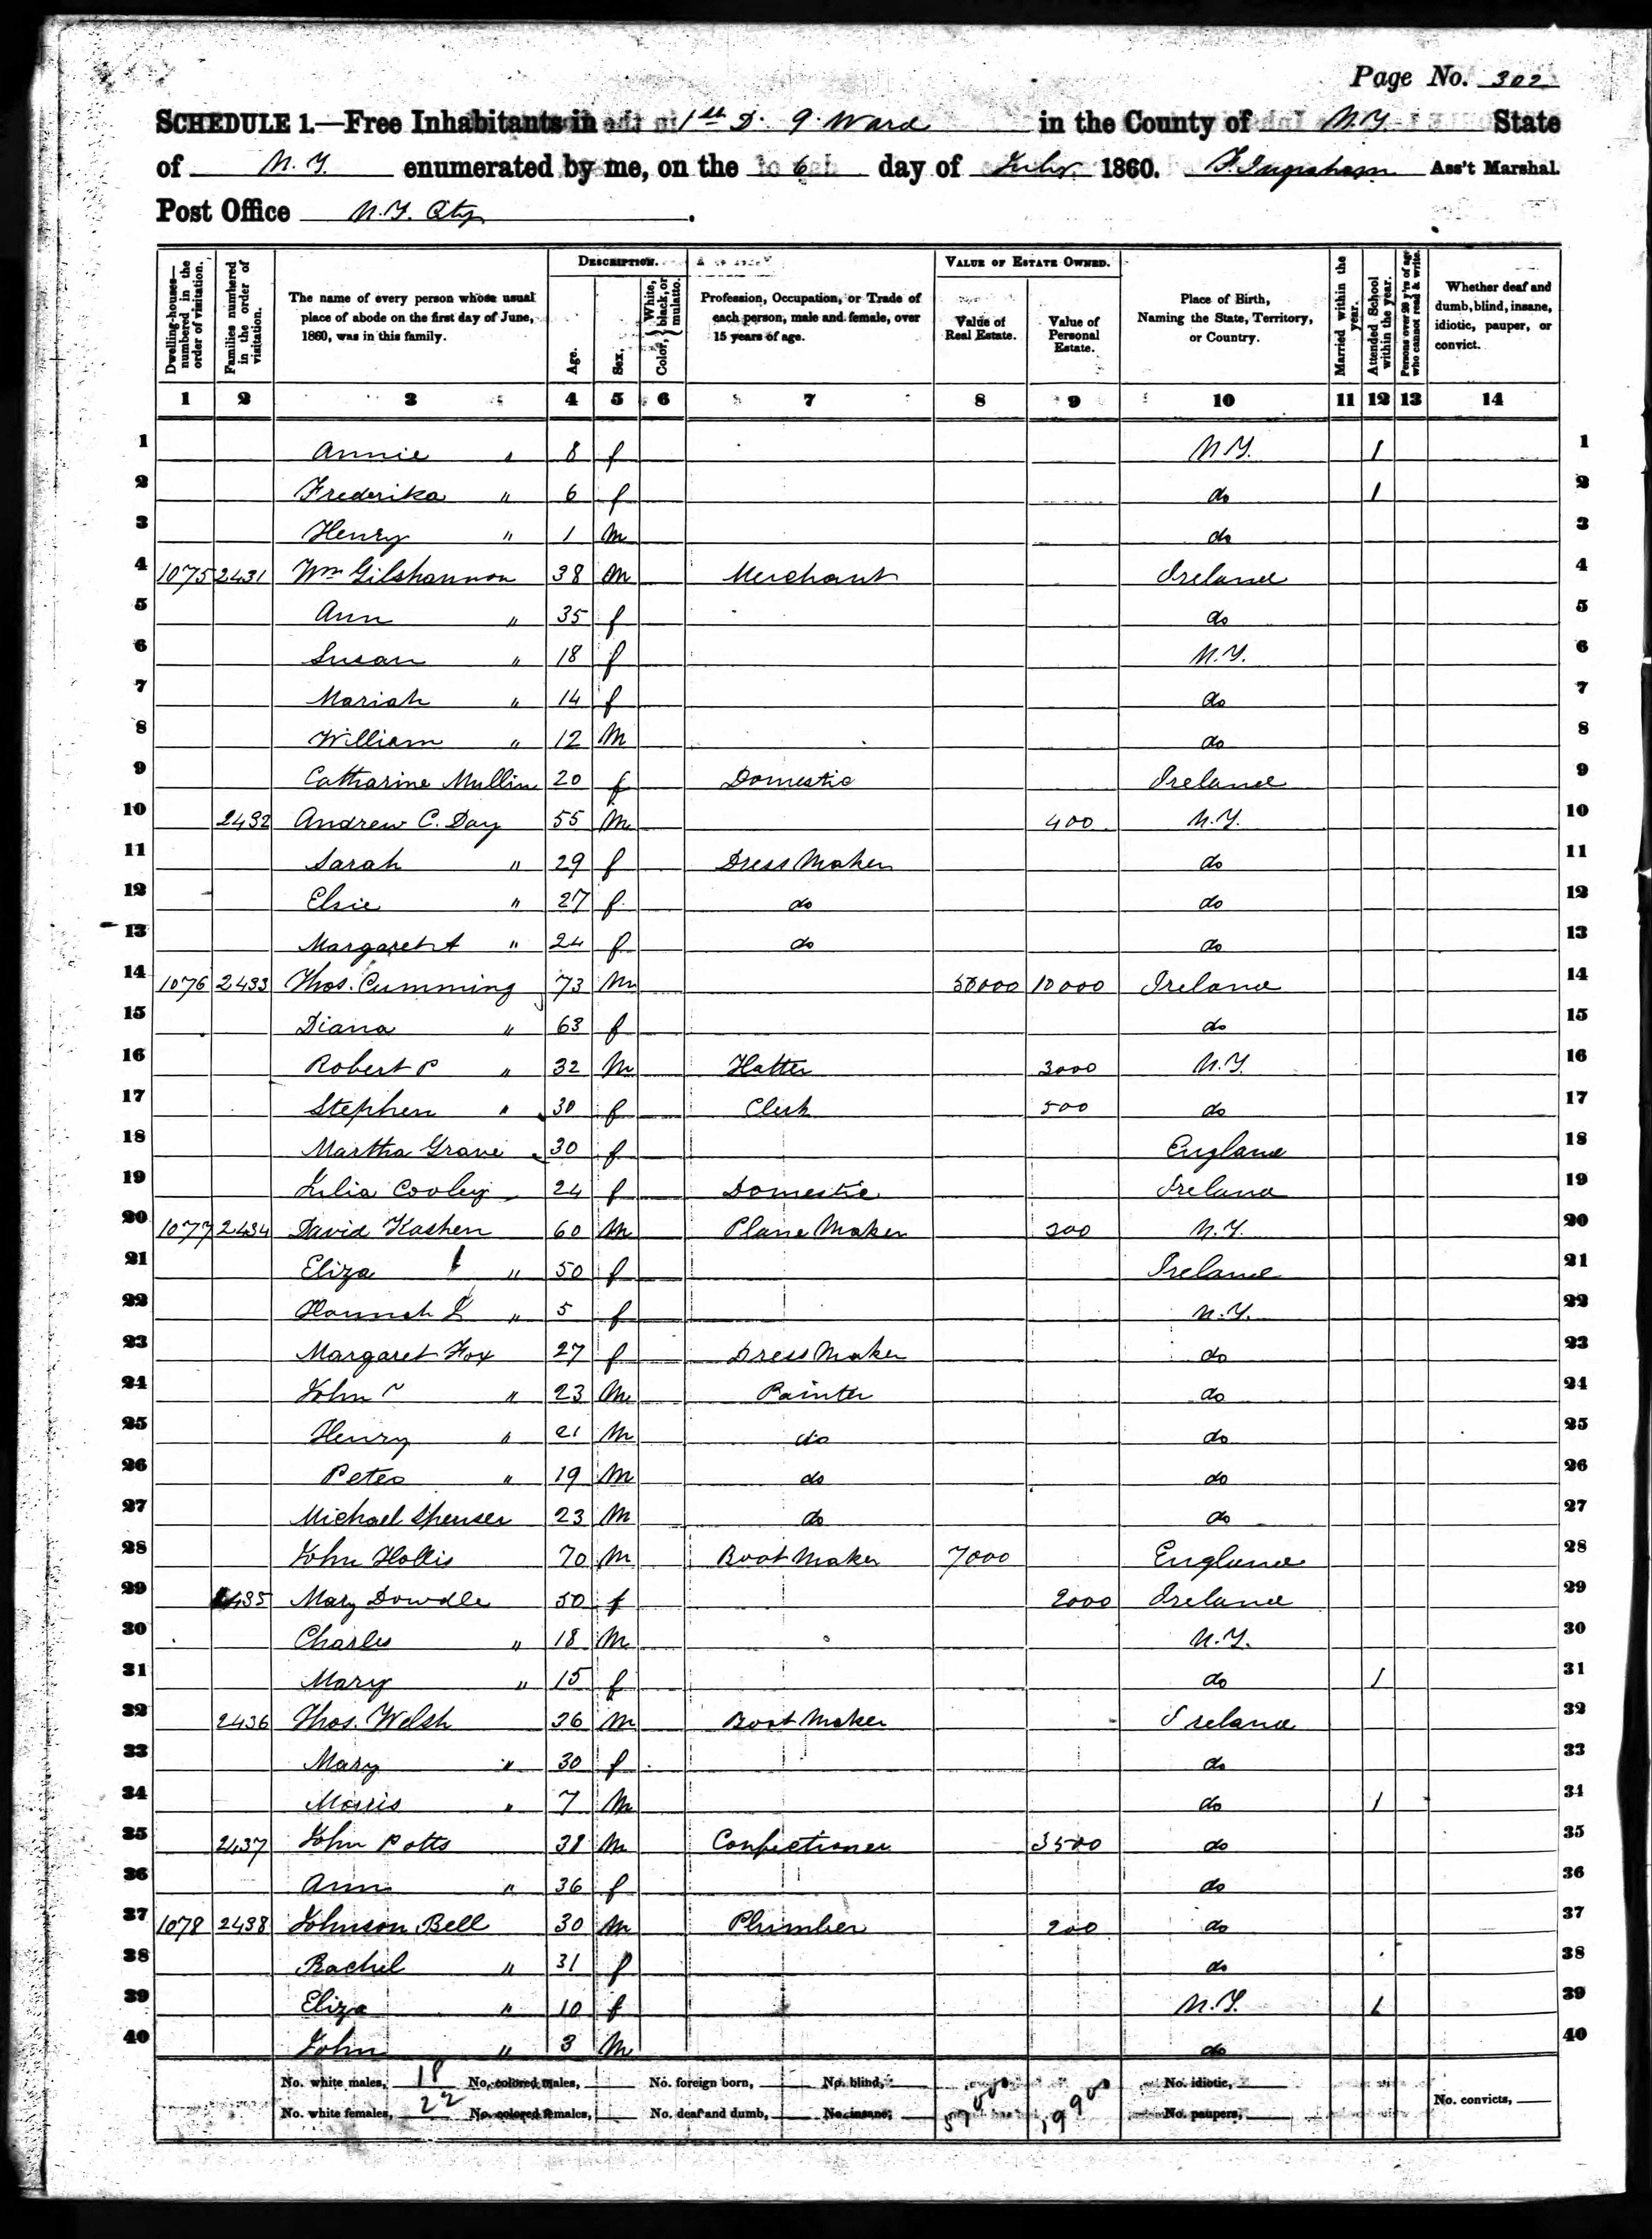 Page No. 302
SCHEDULE 1.—Free Inhabitants in 1st D. 9. Ward in the County of N.Y. State
of N.Y. enumerated by me, on the 6 day of July 1860. F. Ingraham Ass't Marshal.
Post Office N.Y. City.
Dwelling-houses—numbered in the order of visitation. Families numbered in the order of visitation. The name of every person whose usual place of abode on the first day of June, 1860, was in this family. DESCRIPTION. Age. Sex. Color, White, black, or mulatto. Profession, Occupation, or Trade of each person, male and female, over 15 years of age. VALUE OF ESTATE OWNED. Value of Real Estate. Value of Personal Estate. Place of Birth, Naming the State, Territory, or Country. Married within the year. Attended School within the year. Persons over 20 y'rs of age who cannot read & write. Whether deaf and dumb, blind, insane, idiotic, pauper, or convict.
1 2 3 4 5 6 7 8 9 10 11 12 13 14
1 Annie " 8 f N.Y. 1 1
2 Frederika " 6 f do 1 2
3 Henry " 1 m do 3
4 1075 2431 Wm Gilshannon 38 m Merchant Ireland 4
5 Ann " 35 f do 5
6 Susan " 18 f N.Y. 6
7 Mariah " 14 f do 7
8 William " 12 M do 8
9 Catharine Mullin 20 f Domestic Ireland 9
10 2432 Andrew C. Day 55 m 400 N.Y. 10
11 Sarah " 29 f Dress Maker do 11
12 Elsie " 27 f do do 12
13 Margaret A " 24 f do do 13
14 1076 2433 Thos. Cumming 73 m 50000 10000 Ireland 14
15 Diana " 63 f do 15
16 Robert P " 32 m Hatter 3000 N.Y. 16
17 Stephen " 30 f Clerk 500 do 17
18 Martha Grave 30 f England 18
19 Julia Cooley 24 f Domestic Ireland 19
20 1077 2434 David Kashen 60 m Plane Maker 300 N.Y. 20
21 Eliza " 50 f Ireland 21
22 Hannah L " 5 f N.Y. 22
23 Margaret Fox 27 f Dress Maker do 23
24 John " 23 m Painter do 24
25 Henry " 21 m do do 25
26 Peter " 19 m do do 26
27 Michael Spenser 23 m do do 27
28 John Hollis 70 m Boot Maker 7000 England 28
29 2435 Mary Dowdle 50 f 2000 Ireland 29
30 Charles " 18 m N.Y. 30
31 Mary " 15 f do 1 31
32 2436 Thos. Welsh 36 m Boot Maker Ireland 32
33 Mary " 30 f do 33
34 Morris " 7 m do 1 34
35 2437 John Potts 38 m Confectioner 3500 do 35
36 Ann " 36 f do 36
37 1078 2438 Johnson Bell 30 m Plumber 200 do 37
38 Rachel " 31 f do 38
39 Eliza " 10 f N.Y. 1 39
40 John " 3 m do 40
No. white males, 18 No. colored males, No. foreign born, No. blind, 57000 19900 No. idiotic,
No. white females, 22 No. colored females, No. deaf and dumb, No. insane, No. paupers, No. convicts,